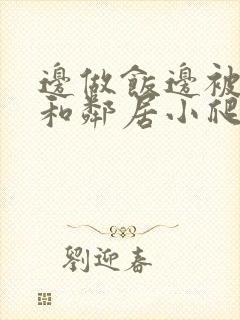 邊做飯邊被
和鄰居小爬
劉迎春